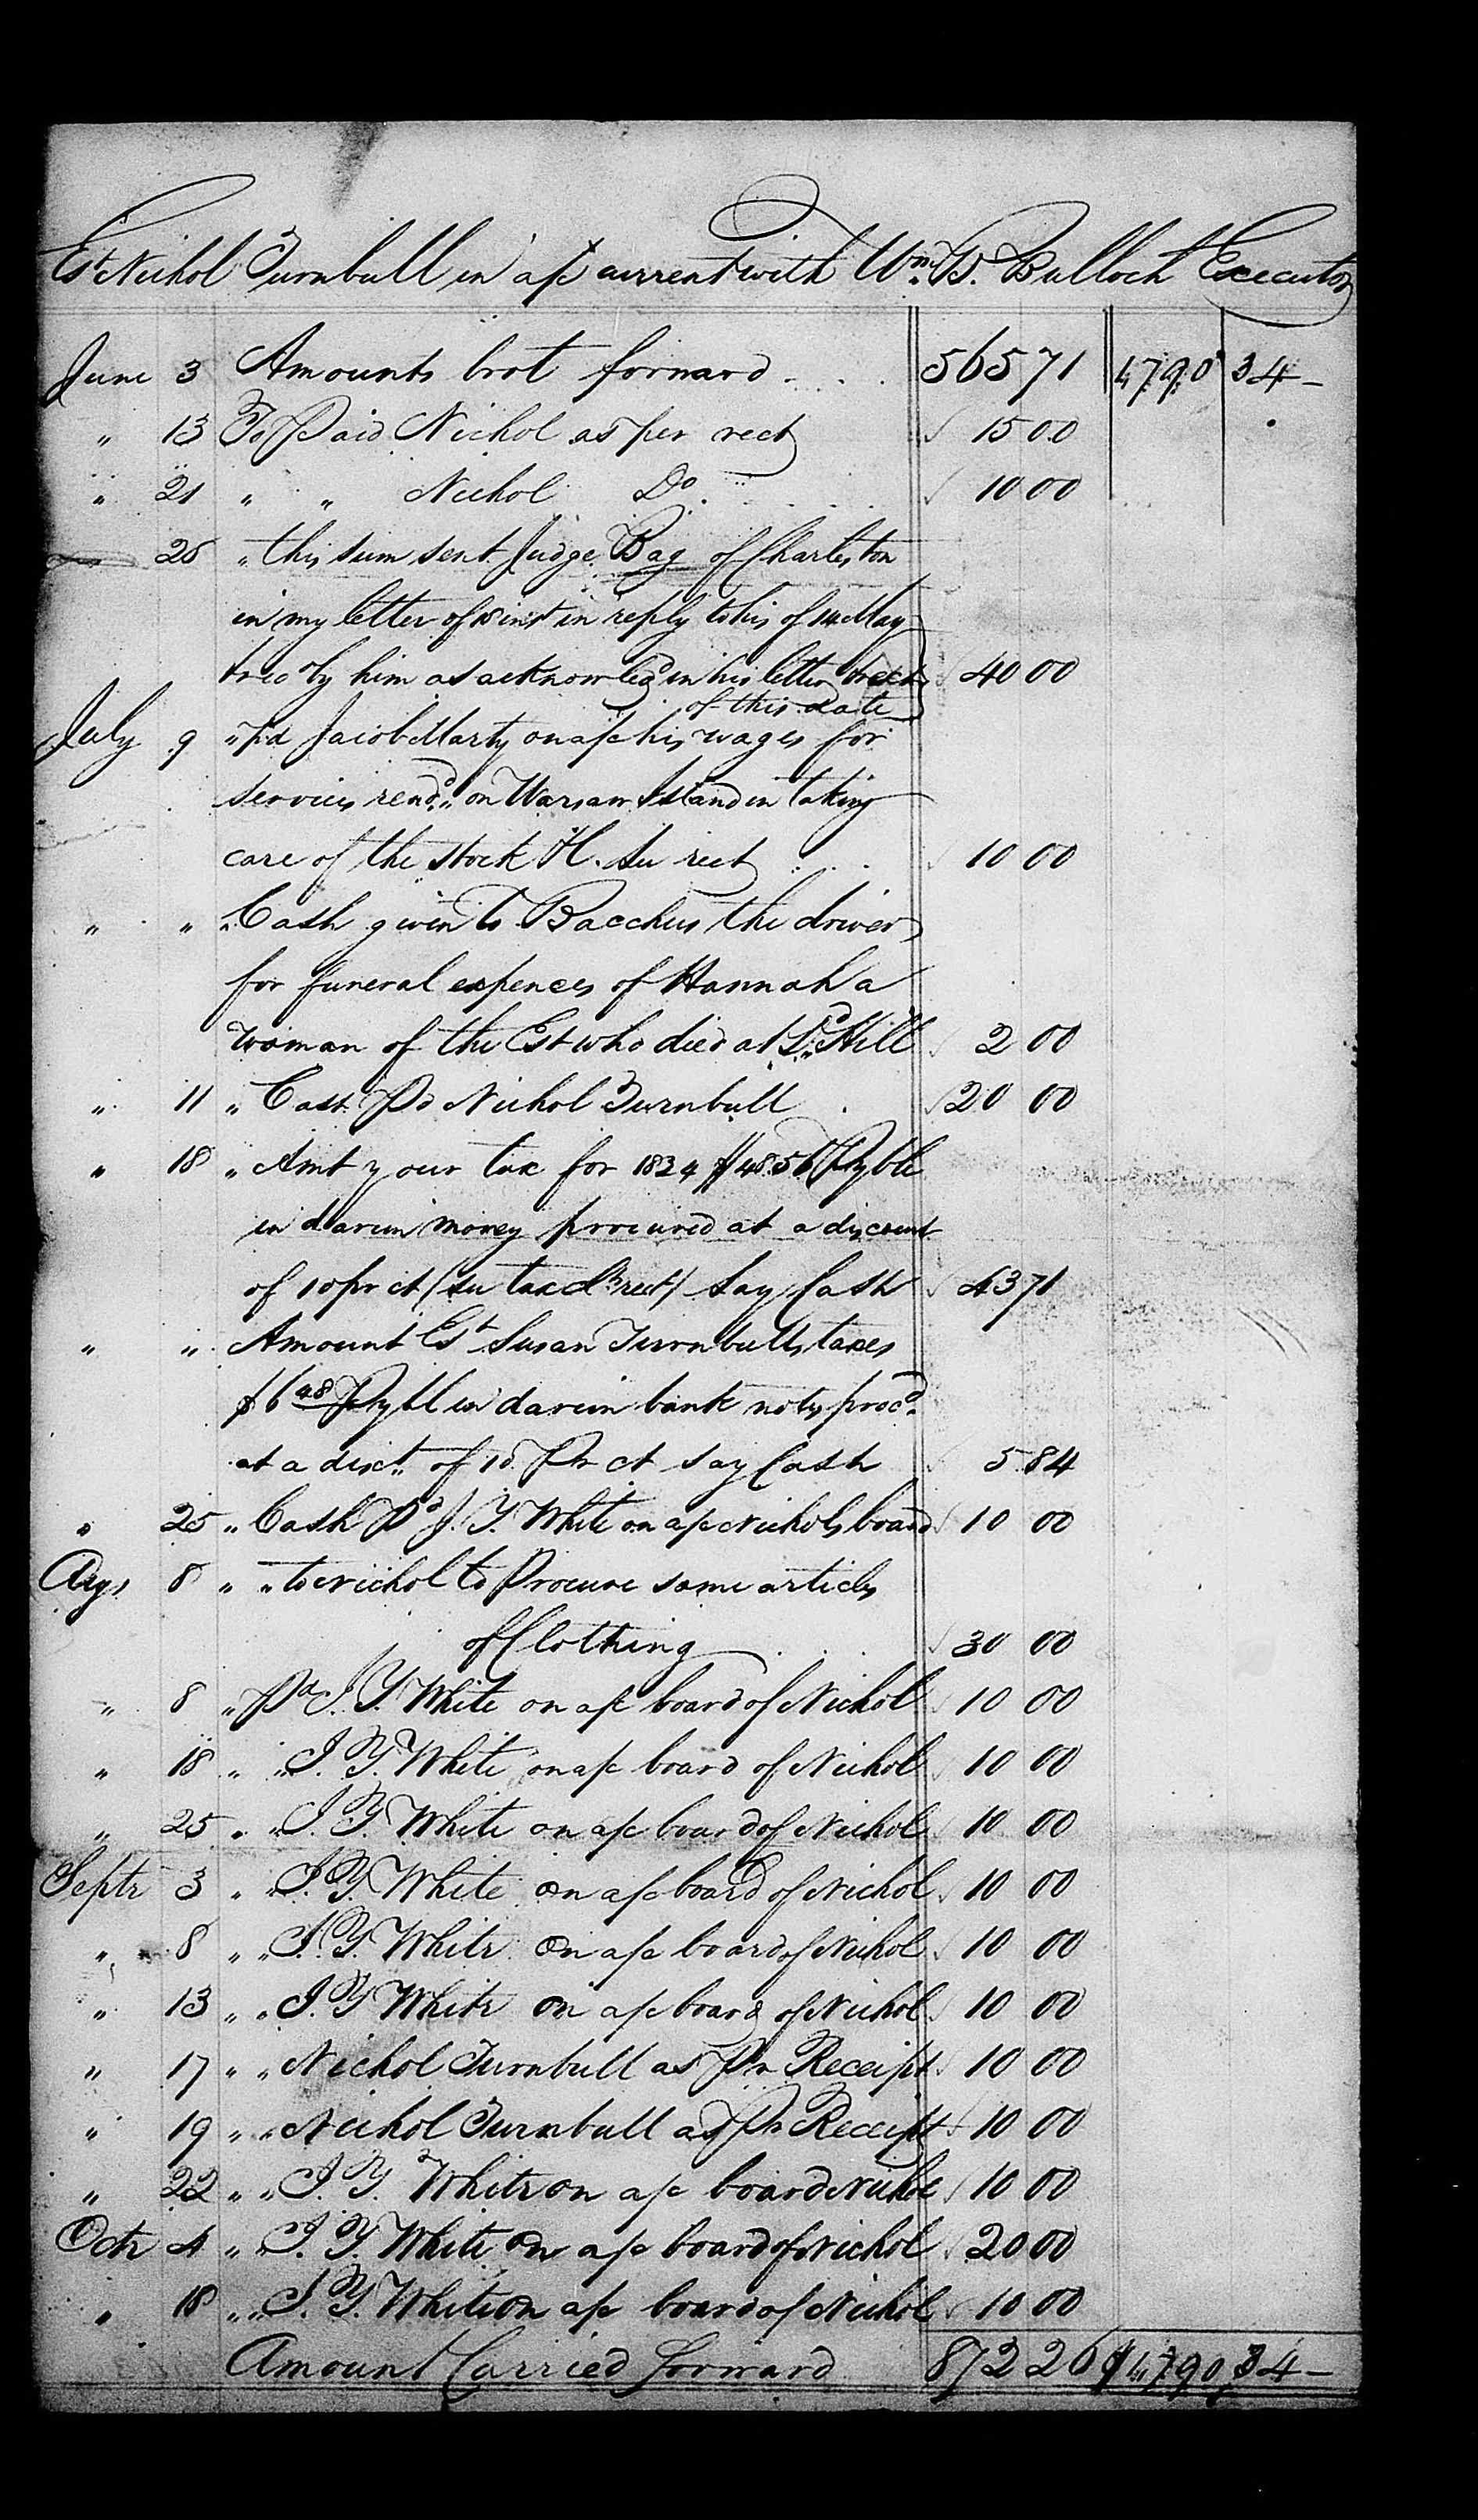 Est Nichol Turnbull in a/c current with Wm. B. Bulloch Executor
June 3 Amounts brot forward 565 71 4790 34
" 13 To Paid Nichol as per rect 15 00
" 21 " " Nichol Do. 10 00
26 " this sum sent Judge Bay of Charleston
in my letter of 18 inst in reply to his of 14 May
& rec by him as acknowledgd in his letter 40 00
of this date
July 9 " pd Jacob Marty on a/c his wages for
services rend. on Warsaw Island in taking
care of the stock &C. See rect 10 00
" " " Cash given to Bacchus the driver
for funeral expences of Hannah a
woman of the Est who died at Hill 2 00
" 11 " Cash Pd Nichol Turnbull 20 00
" 18 " Amt your tax for 1834 $48.56 Pyble
in darien money procured at a discount
of 10 pr ct (see tax rect) Say Cash 43 71
" " Amount Est Susan Turnbulls taxes
$6 48 Pybl in darien bank notes procd.
at a disct. of 10 Pr ct say Cash 5 84
" 25 " Cash Pd J. Y. White on a/c Nichols board 10 00
Augt 8 " " to Nichol to Procure some articles
of Clothing 30 00
" 8 " Pd J. Y. White on a/c board of Nichol 10 00
" 18 " " J. Y. White on a/c board of Nichol 10 00
" 25 " " J. Y. White on a/c board of Nichol 10 00
Septr 3 " " J. Y. White on a/c board of Nichol 10 00
" 8 " " J. Y. White on a/c board of Nichol 10 00
" 13 " " J. Y White on a/c board of Nichol 10 00
" 17 " " Nichol Turnbull as Pr Receipt 10 00
" 19 " " Nichol Turnbull as Pr Receipt 10 00
" 22 " " J. Y. White on a/c board Nichol 10 00
Octr 4 " " J. Y. White on a/c board of Nichol 20 00
" 18 " " J. Y. White on a/c board of Nichol 10 00
Amount Carried forward 872 26 $4790 34